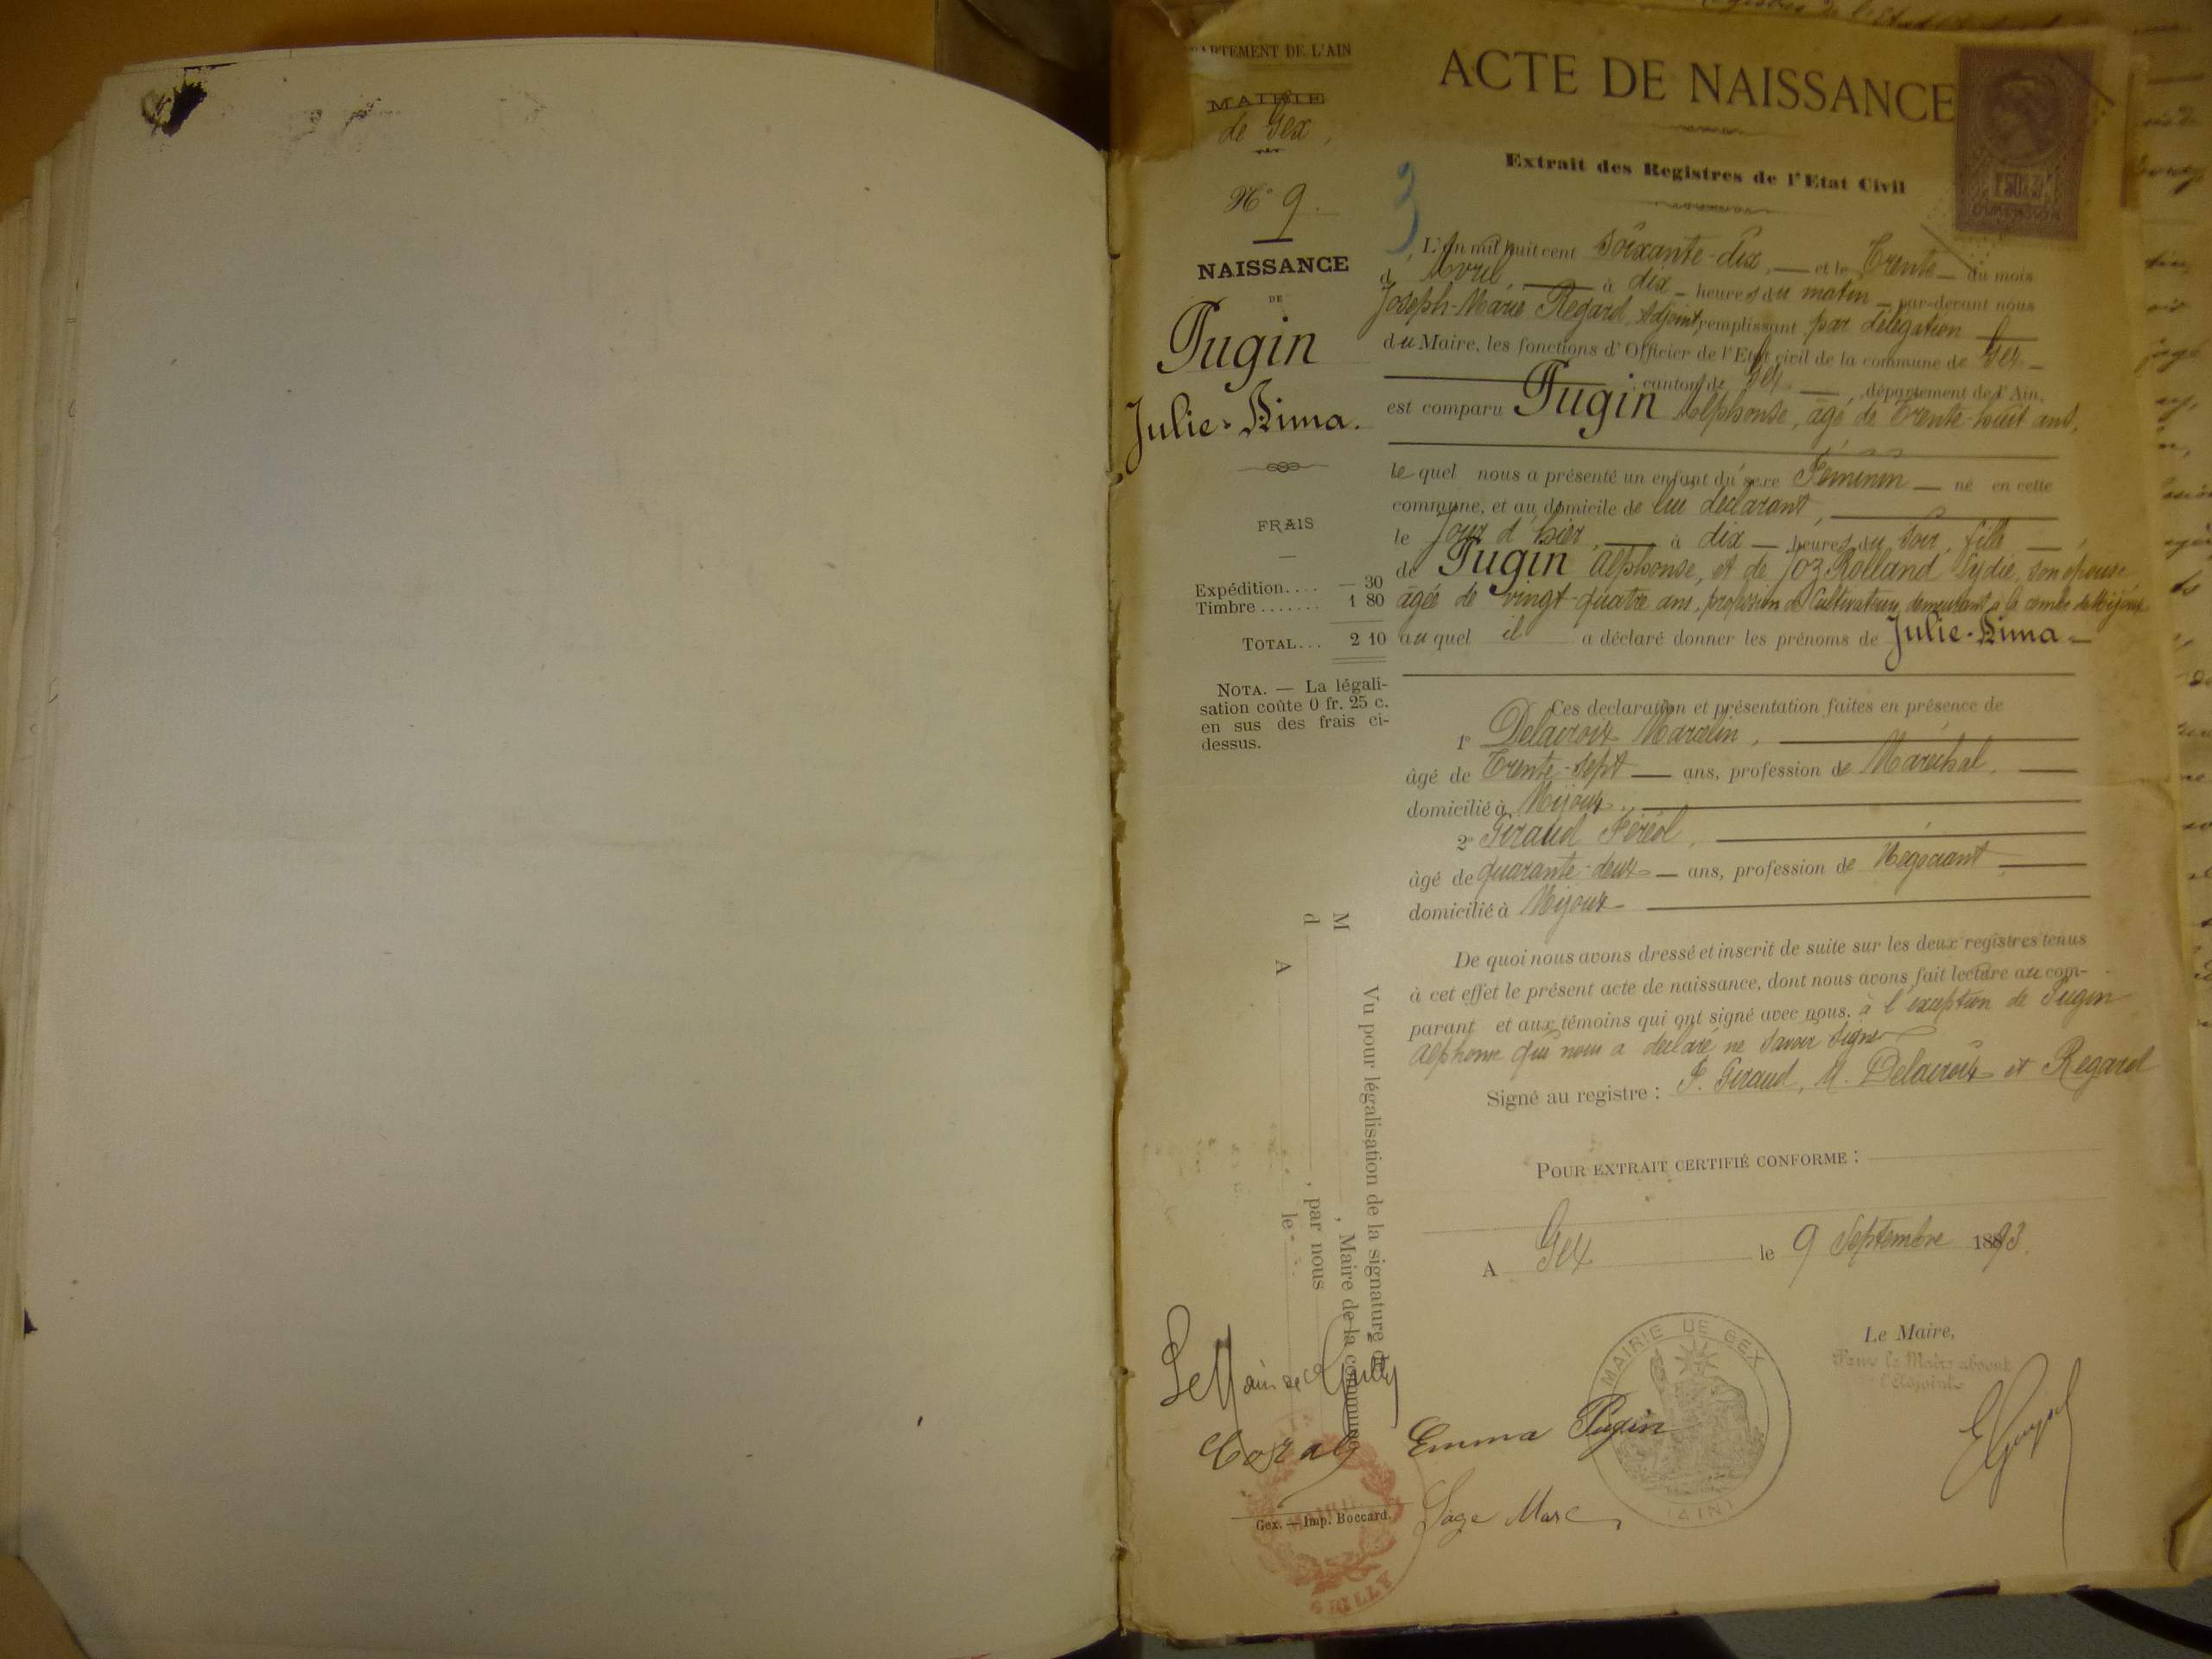 DÉPARTEMENT DE L'AIN
MAIRIE
de Gex,
N° 9.
NAISSANCE
DE
Pugin
Julie-Zima.
FRAIS
Expédition.... — 30
Timbre....... 1 80
TOTAL... 2 10
NOTA. — La légali-
sation coûte 0 fr. 25 c.
en sus des frais ci-
dessus.
ACTE DE NAISSANCE
Extrait des Registres de l'Etat Civil
3
L'An mil huit cent soixante-dix, — et le Trente — du mois
d'Avril, — à dix — heures du matin — par-devant nous
Joseph-Marie Regard, adjoint, remplissant par délégation
du Maire, les fonctions d'Officier de l'Etat civil de la commune de Gex —
canton de Gex —, département de l'Ain,
est comparu Pugin Alphonse, âgé de Trente-huit ans,
lequel nous a présenté un enfant du sexe Féminin — né en cette
commune, et au domicile de lui déclarant,
le jour d'hier, — à dix — heures du soir, fille —,
de Pugin Alphonse, et de Joz-Rolland Lydie, son épouse
âgée de vingt-quatre ans, profession de Cultivateurs, demeurant à la combe de Mijoux
auquel il a déclaré donner les prénoms de Julie-Zima —
Ces declaration et présentation faites en présence de
1° Delacroix Marcelin,
âgé de Trente-sept — ans, profession de Maréchal, —
domicilié à Mijoux,
2° Giraud Féréol,
âgé de quarante-deux — ans, profession de Négociant —
domicilié à Mijoux —
De quoi nous avons dressé et inscrit de suite sur les deux registres tenus
à cet effet le présent acte de naissance, dont nous avons fait lecture au com-
parant et aux témoins qui ont signé avec nous, à l'exception de Pugin
Alphonse qui nous a déclaré ne savoir signer
Signé au registre : F. Giraud, M. Delacroix et Regard
POUR EXTRAIT CERTIFIÉ CONFORME :
A Gex le 9 Septembre 1893.
Le Maire,
Pour le Maire absent
l'Adjoint
MAIRIE DE GEX
(AIN)
Vu pour légalisation de la signature de
M , Maire de la commune
d , par nous
A le
Le Maire de Grilly
Emma Pugin
Sage Marc
GRILLY
Gex. — Imp. Boccard.